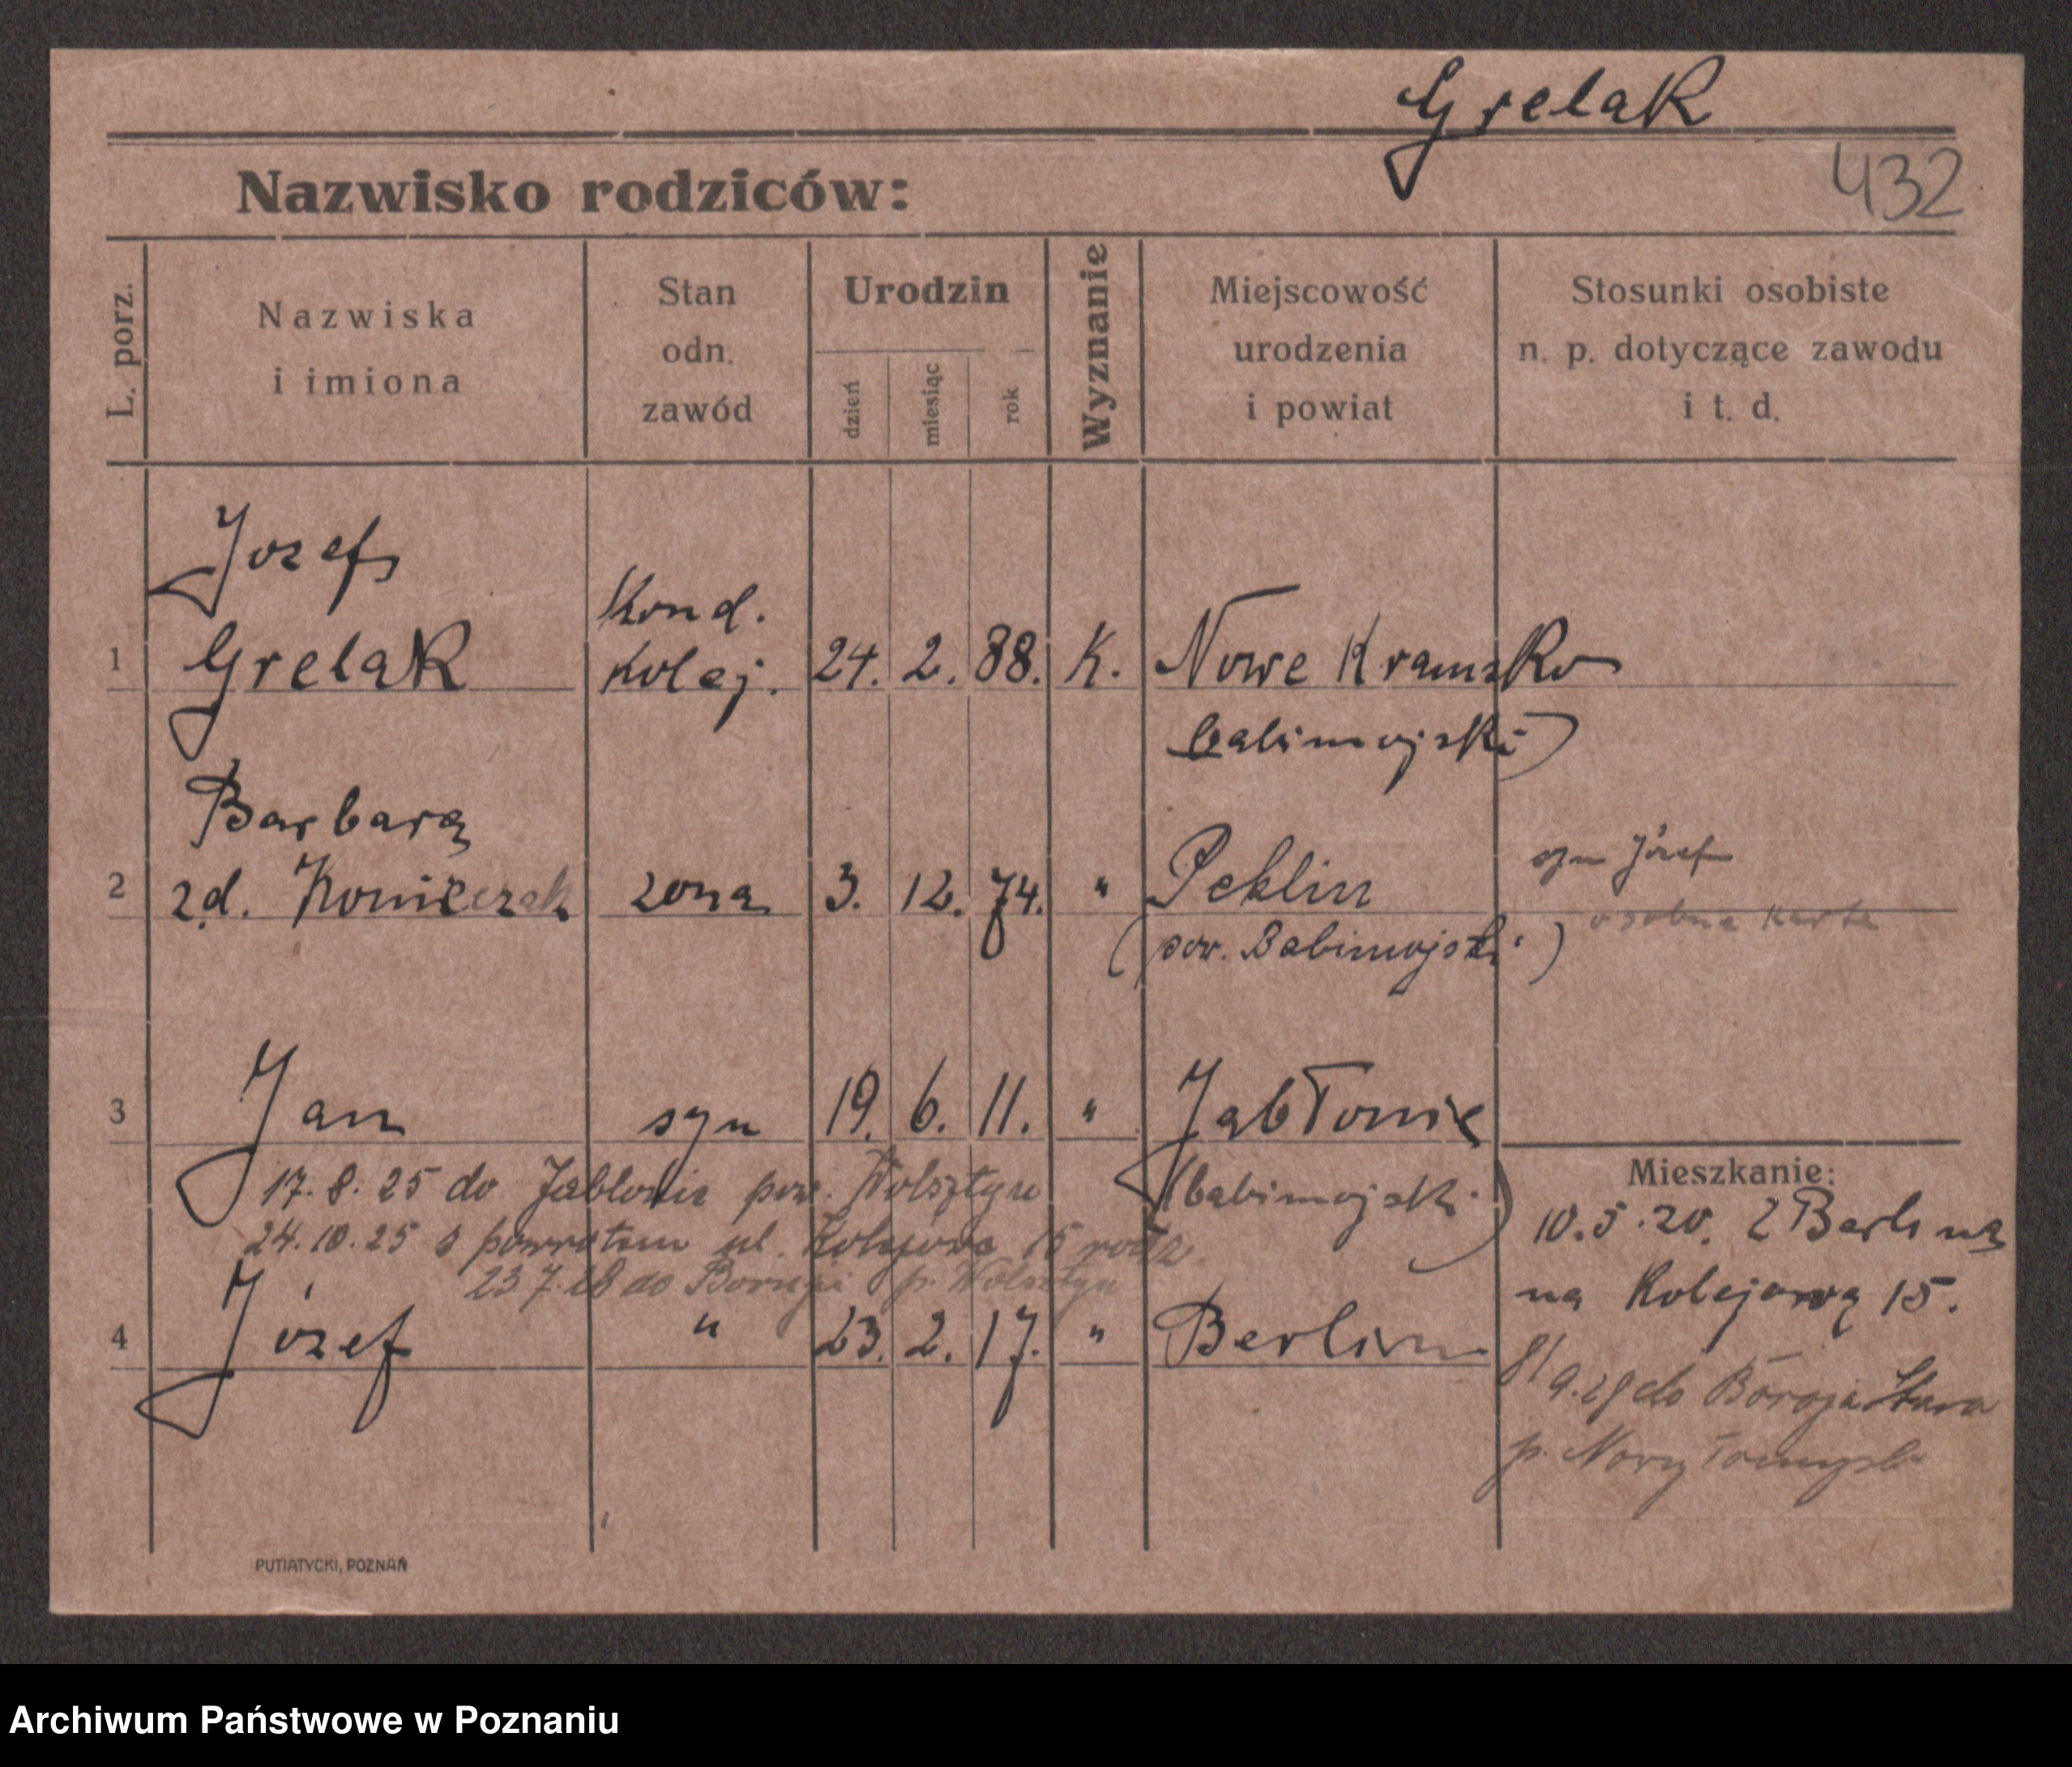 Grelak
432
Nazwisko rodziców:
L. porz.
Nazwiska
i imiona
Stan
odn.
zawód
Urodzin
dzień
miesiąc
rok
Wyznanie
Miejscowość
urodzenia
i powiat
Stosunki osobiste
n. p. dotyczące zawodu
i t. d.
Jozef
1 Grelak
Kond.
kolej.
24. 2. 88. K. Nowe Kramsko
babimojski)
Barbara
2 zd. żona 3. 12. 74. " Peklin
(pow. Babimojski)
syn Józef
osobna karta
3 Jan syn 19. 6. 11. " Jabłonie
(babimojski)
17. 8. 25 do Jablonie pow. Wolsztyn
24. 10. 25 z powrotem ul. Kolejowa 15
23.7.28 do p. Wolsztyn
4 Józef " 23. 2. 17. " Berlin
Mieszkanie:
10.5.20. Z Berlina
na Kolejową 15.
do Boruja Stara
p. Nowy Tomysl
PUTIATYCKI, POZNAŃ
Archiwum Państwowe w Poznaniu